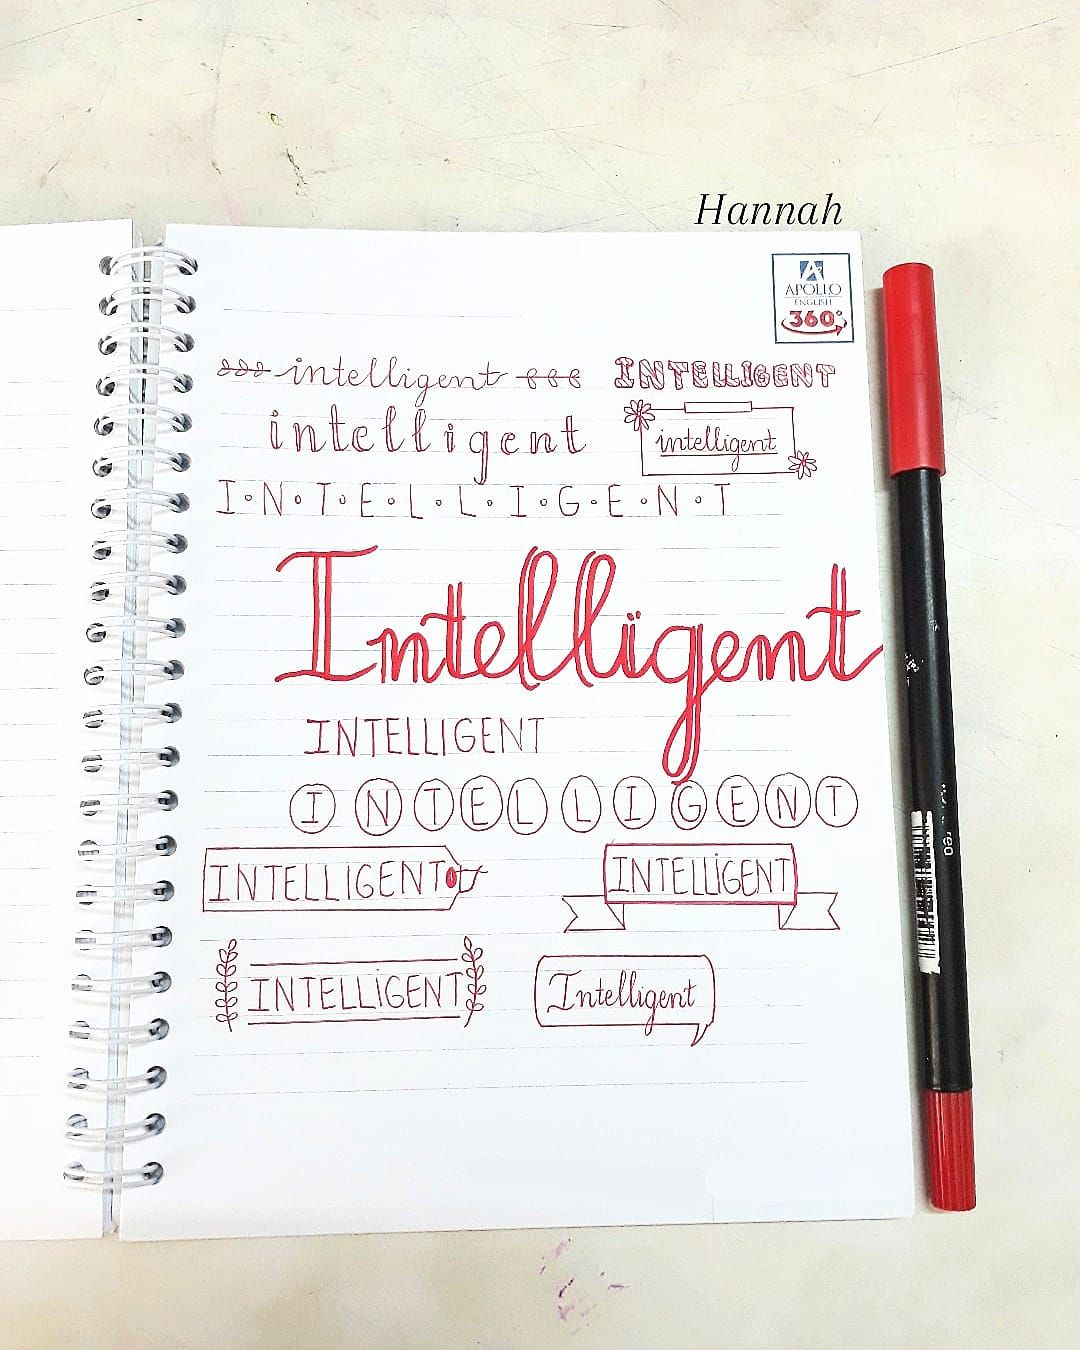 Hannah
APOLLO
ENGLISH
360°
intelligent INTELLIGENT
intelligent intelligent
I•N•T•E•L•L•I•G•E•N•T
Intelligent
INTELLIGENT
INTELLIGENT
INTELLIGENT INTELLIGENT
INTELLIGENT Intelligent